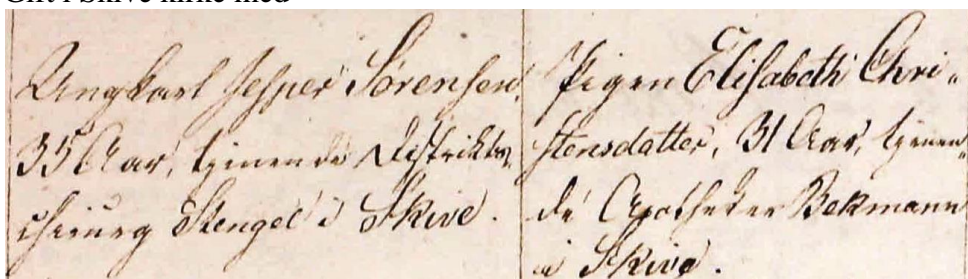 Gift i Skive kirke med
Ungkarl Jesper Sørensen,
35 Aar, tjenende Distrikts-
chirurg Stengel i Skive.
Pigen Elisabeth Chri-
stensdatter, 31 Aar, tjenen-
de Apotheker Bekmann
i Skive.